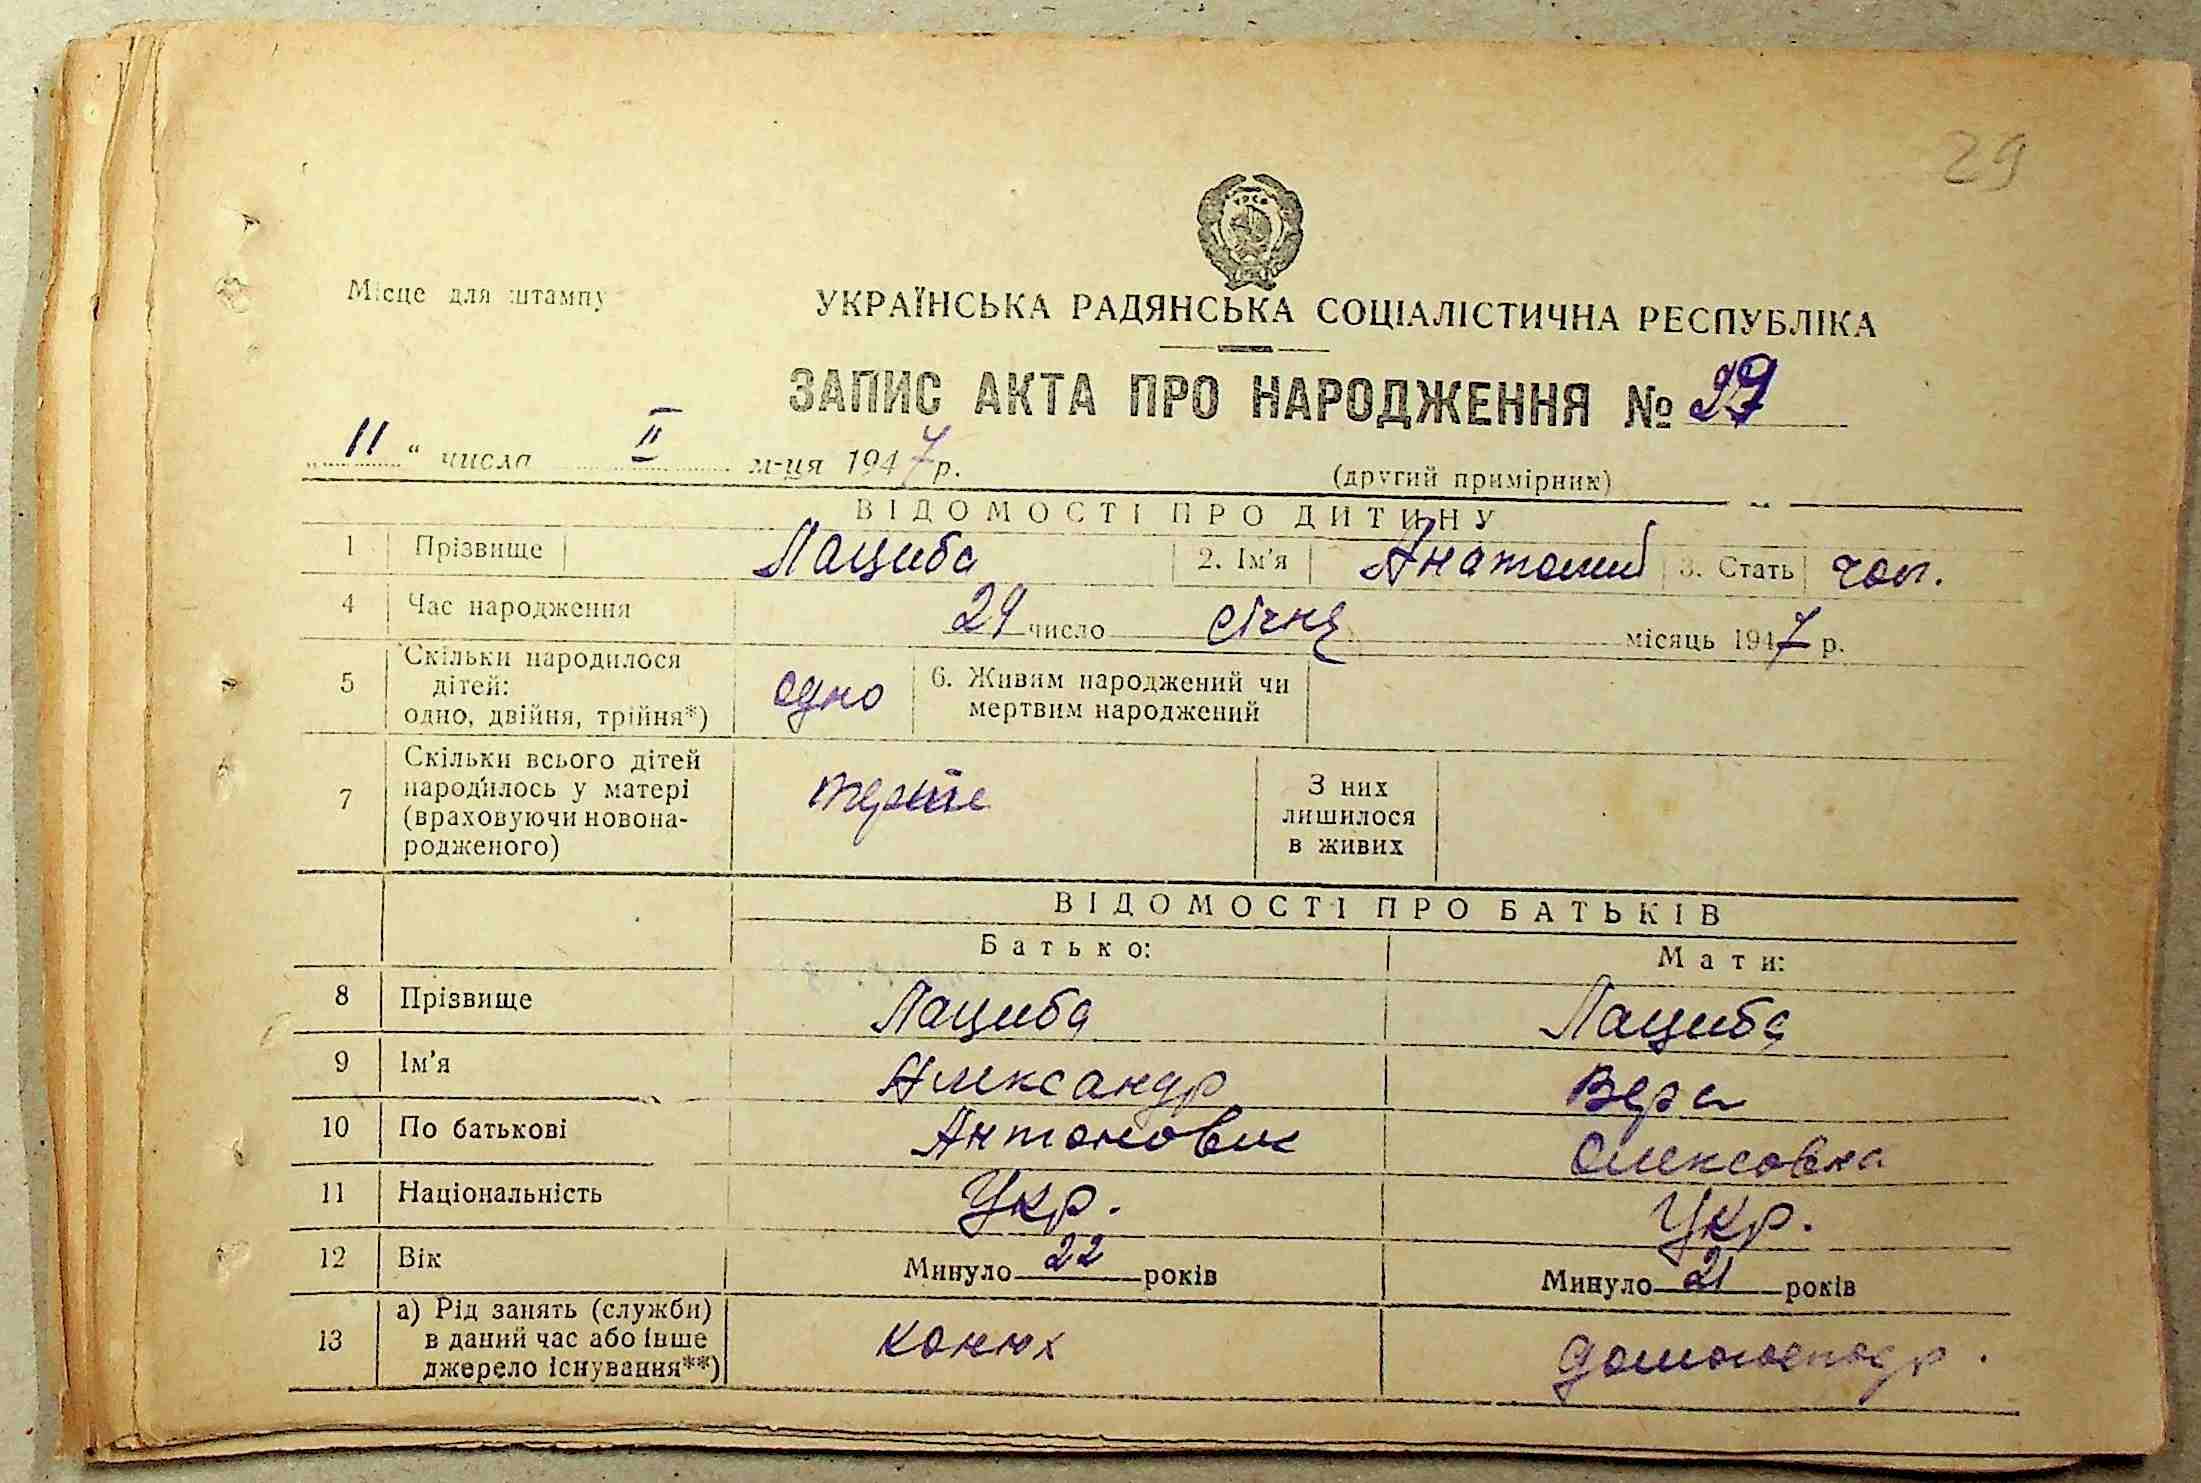 29
Місце для штампу
УРСР
УКРАЇНСЬКА РАДЯНСЬКА СОЦІАЛІСТИЧНА РЕСПУБЛІКА
ЗАПИС АКТА ПРО НАРОДЖЕННЯ №
„11“ числа II м-ця 1947 р.
(другий примірник)
ВІДОМОСТІ ПРО ДИТИНУ
1 Прізвище Лациба 2. Ім'я Анатолий 3. Стать чол.
4 Час народження 29 число січня місяць 1947 р.
5 Скільки народилося дітей: одно, двійня, трійня*) одно 6. Живим народжений чи мертвим народжений
7 Скільки всього дітей народилось у матері (враховуючи новонародженого) перше З них лишилося в живих
ВІДОМОСТІ ПРО БАТЬКІВ
Батько: Мати:
8 Прізвище Лациба Лациба
9 Ім'я Александр Вера
10 По батькові Антонович Олексовна
11 Національність Укр. Укр.
12 Вік Минуло 22 років Минуло 21 років
13 а) Рід занять (служби) в даний час або інше джерело існування**) конюх домогосподр.